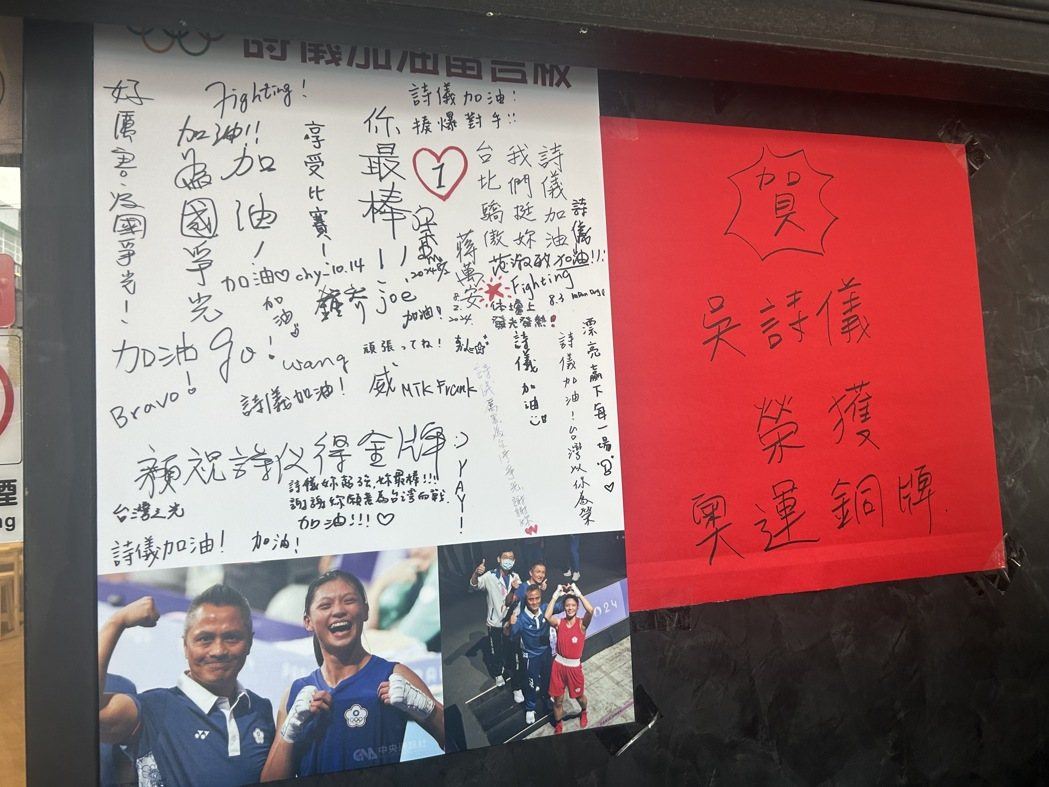 詩儀加油留言板
好厲害為國爭光!
Fighting!
加油!!
為國爭光
加油!
享受比賽!
你最棒!!
1
詩儀加油!
揍爆對手!!
台北驕傲
我們挺妳
詩儀加油
詩儀加油!!!
蔣萬安
2024
Fighting
8.3
體壇上
發光發熱!
加油♡
chy-10.14
加油
joe
加油!
加油!
go!
wang
頑張ってね!
Bravo!
詩儀加油!
威
MTK Frank
詩儀加油
詩儀加油!台灣以你為榮
漂亮贏下每一場
願祝詩儀得金牌
:) YAY!
詩儀妳超強,妳最棒!!!
謝謝妳願意為台灣而戰
加油!!!♡
台灣之光
詩儀加油!
加油!
賀
吳詩儀
榮獲
奧運銅牌.
CNA 中央通訊社
2024
煙
ng